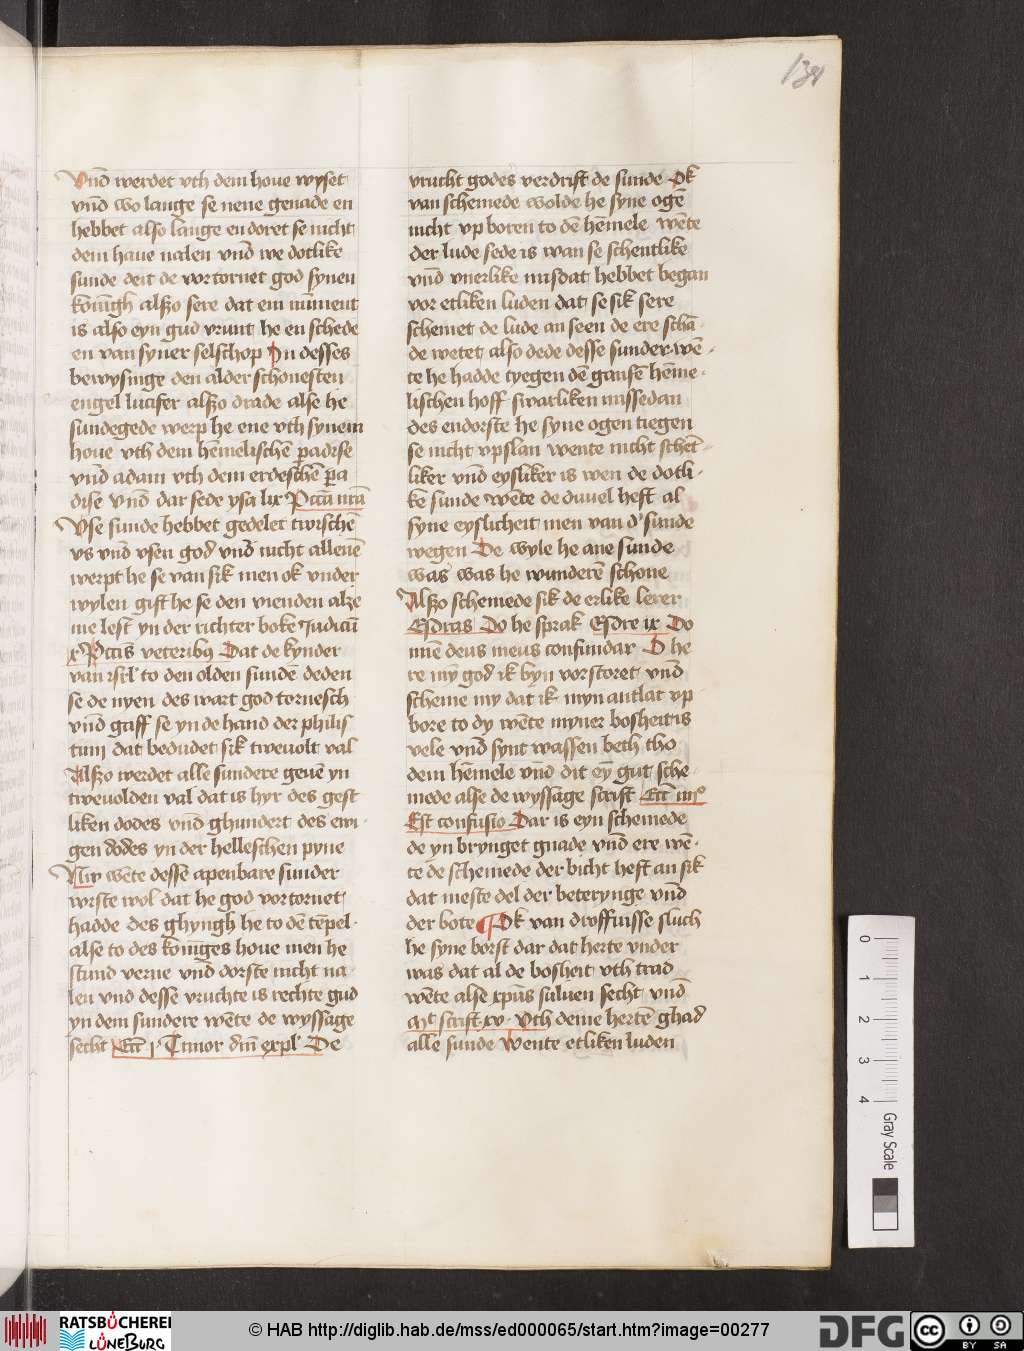 134
Vnd werdet vth dem houe wyset
vnd wo lange se nene genade en
hebbet also lange en doret se nicht
dem haue nalen vnd we dotlike
sunde deit de vortornet god synen
konigh alszo sere dat em nument
is also eyn gud vrunt he en schede
en van syner selschop In desses
bewysinge den alder schonesten
engel lucifer alszo drade alse he
sundegede werp he ene vth synem
houe vth dem hēmelischē padise
vnd adam vth dem erdeschē pa
dise vnd dar sede ysa lix Pctā nrā
Vse sunde hebbet gedelet twischē
vs vnd vsen god vnd nicht allenē
werpt he se van sik men ok vnder
wylen gift he se den vienden alze
me lest yn der richter boke Judicū
x Pctis veteribꝰ Dat de kynder
van isrl to den olden sundē deden
se de nyen des wart god tornesch
vnd gaff se yn de hand der philis
tim dat bedudet sik twevolt val
Alszo werdet alle sundere geuē yn
tweuolden val dat is hyr des gest
liken dodes vnd ghundert des ewi
gen dodes yn der helleschen pyne
Nw wēte dessē apenbare sunder
wiste wol dat he god vortornet
hadde des ghyngh he to dē tēpel
alse to des koniges houe men he
stund verne vnd dorste nicht na
len vnd desse vruchte is rechte gud
yn dem sundere wēte de wyssage
secht Ecc i Timor dm̄ expl De
vrucht godes verdrift de sunde Ok
van schemede wolde he syne oge
nicht vp boren to dē hēmele wēte
der lude sede is wan se schentlike
vnd vnerlike misdat hebbet began
vor etliken luden dat se sik sere
schemet de lude an seen de ere schā
de wetet also dede desse sunder wē
te he hadde tyegen dē gansē hēme
lischen hoff swarliken missedan
des endorste he syne ogen tiegen
se nicht vpslan wente nicht schēt
liker vnd eysliker is wen de dotli
kē sunde wēte de duuel heft al
syne eyslicheit men van dˢ sunde
wegen De wyle he ane sunde
was was he wunderē schone
Alszo schemede sik de erlike lerer
Esdras Do he sprak Esdre ix Do
mīe deus meus confundar O he
re my god ik byn vorstoret vnd
scheme my dat ik myn antlat vp
bore to dy wēte myner bosheit is
vele vnd synt wassen beth tho
dem hēmele vnd dit ey gut sche
mede alse de wyssage scrift Ecc iiiiº
Est confusio Dar is eyn schemede
de yn brynget gnade vnd ere wē
te de schemede der bicht heft an sik
dat meste del der beterynge vnd
der bote Ok van droffnisse sluch
he syne borst dar dat herte vnder
was dat al de bosheit vth trad
wēte alse xpūs suluen secht vnd
Mt scrift xv Vth deme hertē ghad
alle sunde Wente etliken luden
0
1
2
3
4
Gray Scale
RATSBÜCHEREI
LÜNEBURG
© HAB http://diglib.hab.de/mss/ed000065/start.htm?image=00277
DFG
cc
BY SA